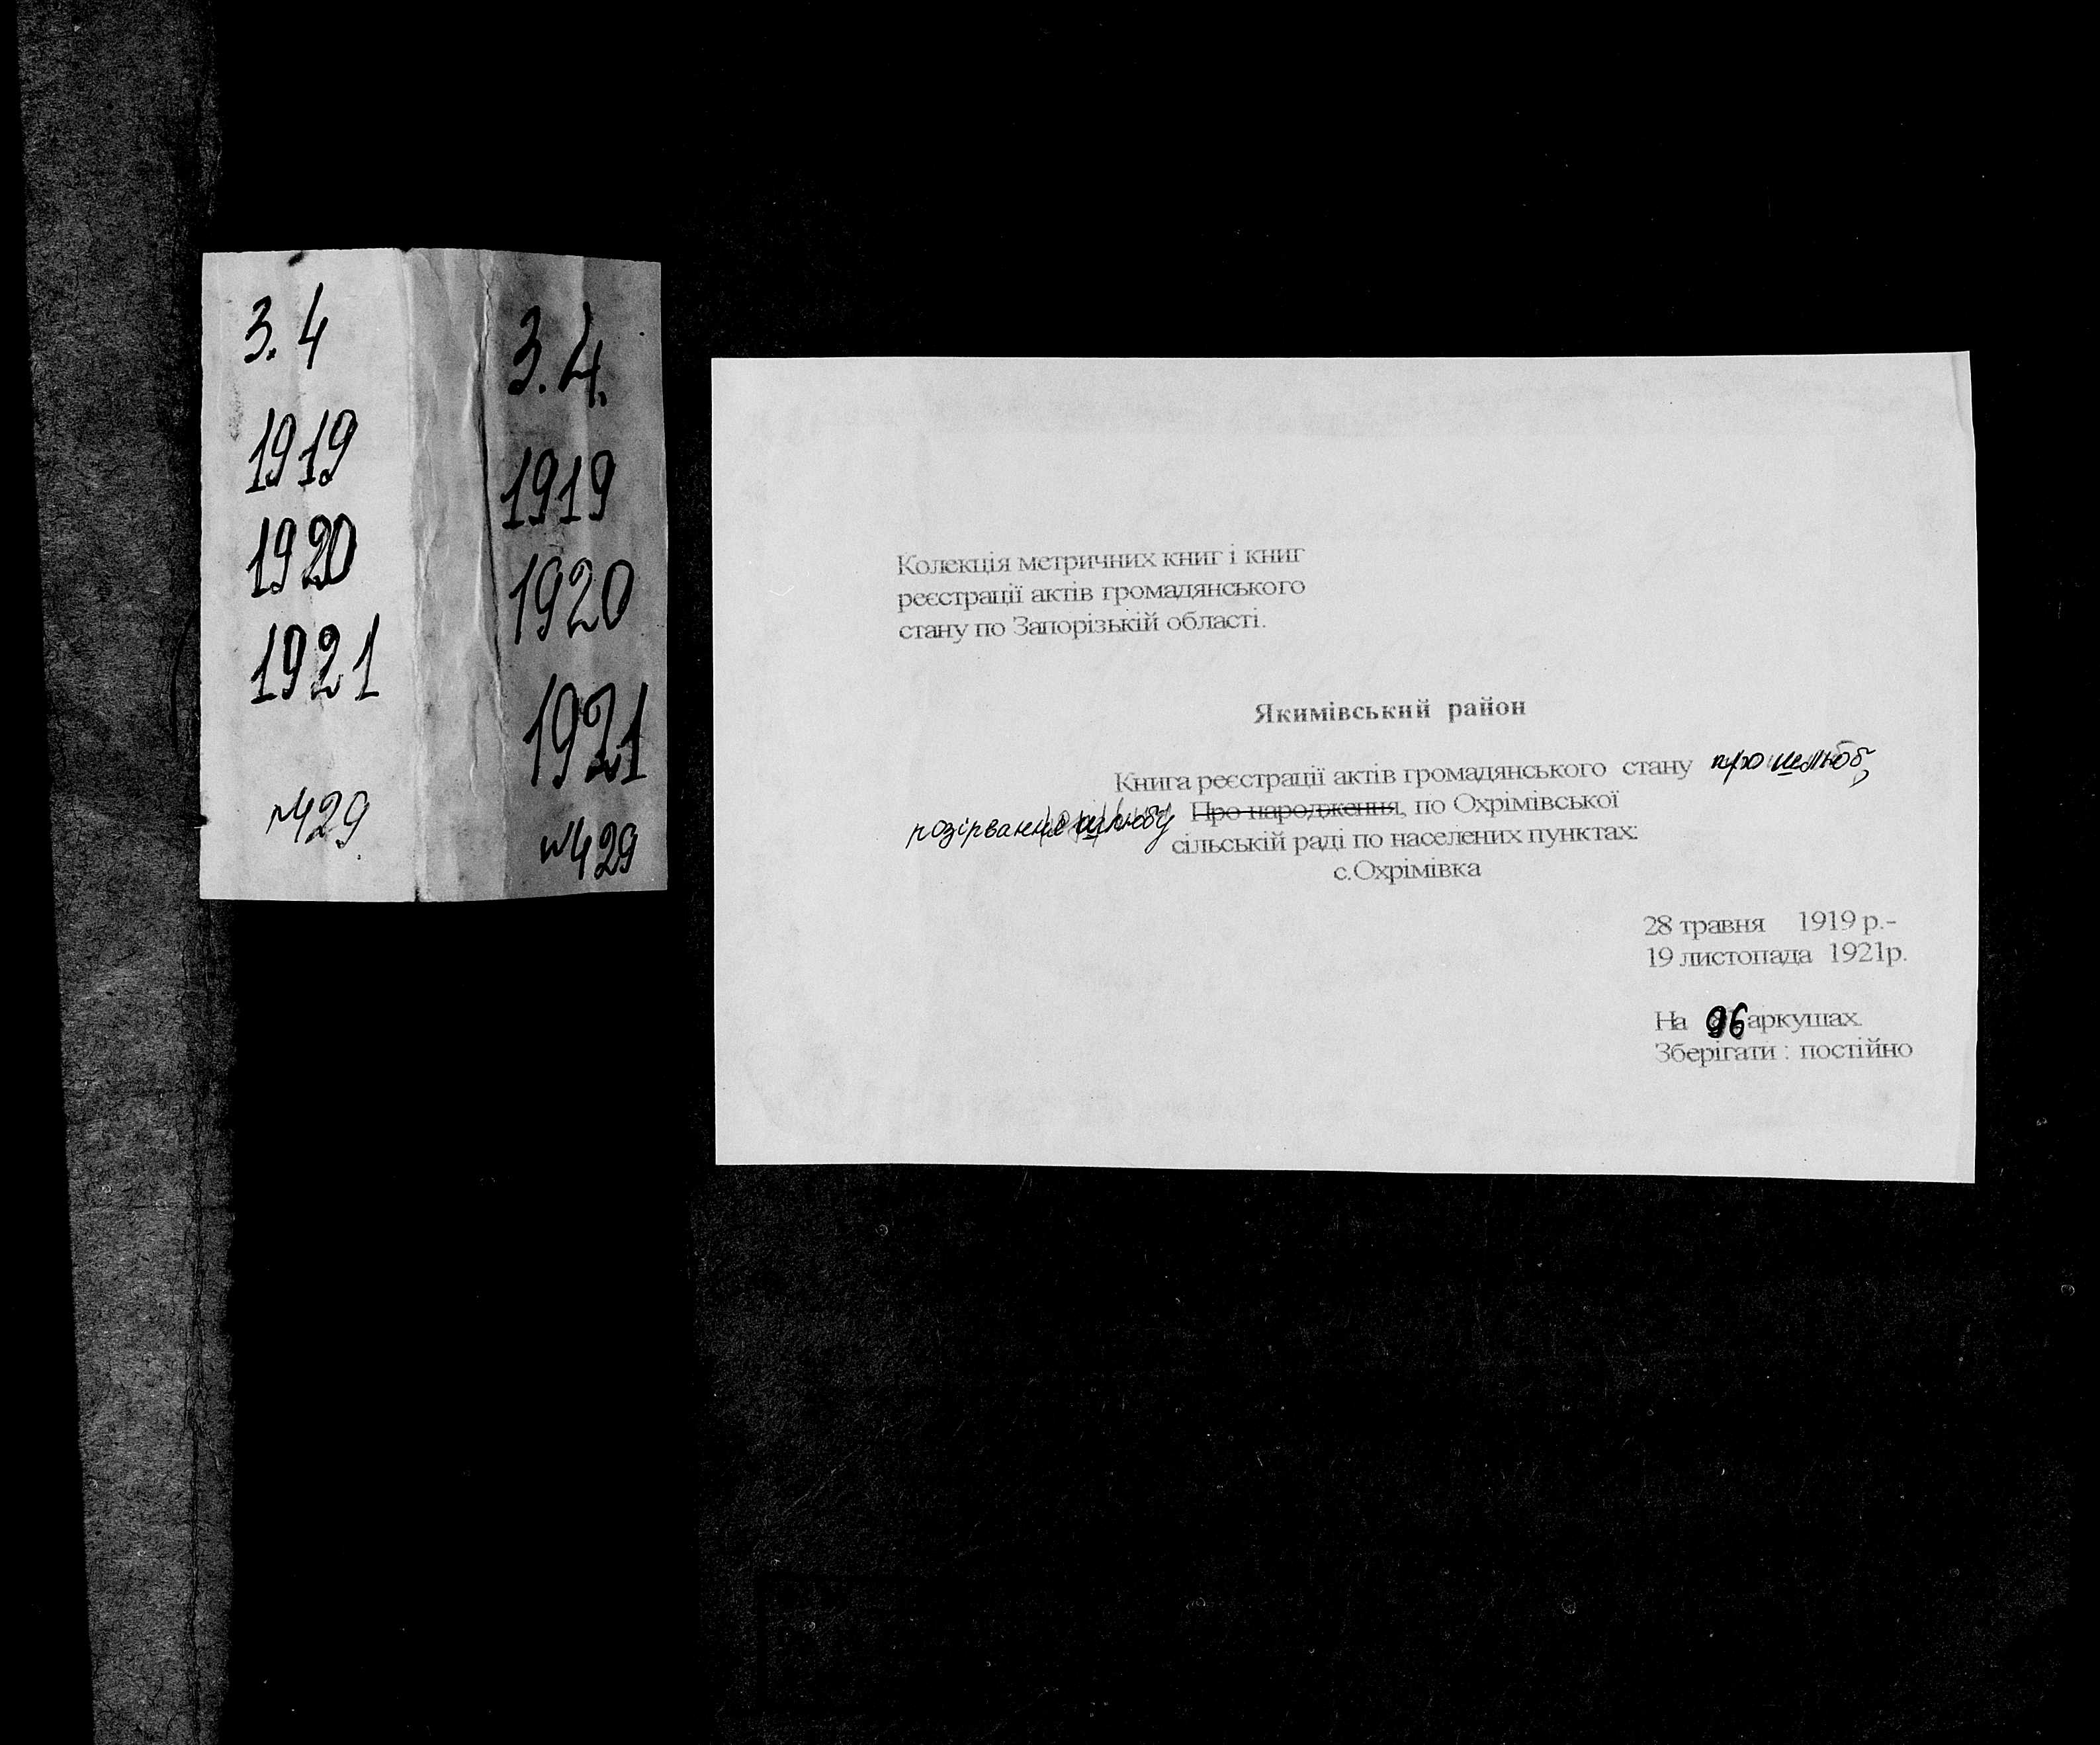 3. 4
1919
1920
1921
№429
3. 4.
1919
1920
1921
№429
Колекція метричних книг і книг
реєстрації актів громадянського
стану по Запорізькій області.
Якимівський район
Книга реєстрації актів громадянського стану про шлюб,
розірвання шлюбу Про народження, по Охрімівської
сільській раді по населених пунктах:
с.Охрімівка
28 травня 1919 р.-
19 листопада 1921р.
На 96 аркушах.
Зберігати : постійно